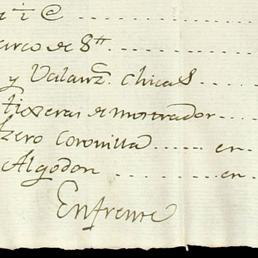 arco de 8tt
y Valanz. chicas
tixeras de mostrador
zero Coronilla en
Algodon en
Enfrente